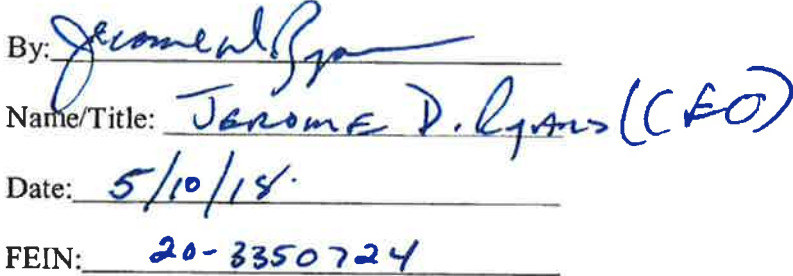 By: Jerome D. Ryans
Name/Title: Jerome D. Ryans (CEO)
Date: 5/10/18.
FEIN: 20-3350724